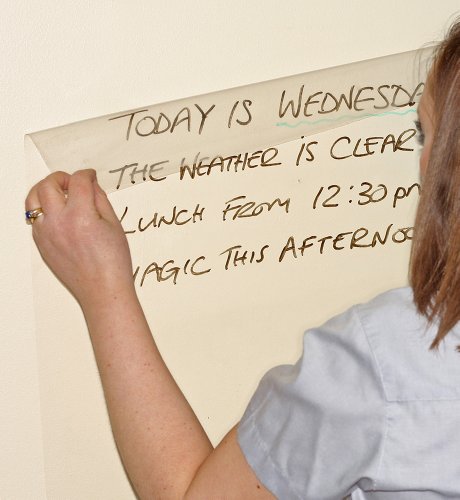 TODAY IS WEDNESDA
THE WEATHER IS CLEAR
LUNCH FROM 12:30 pm
MAGIC THIS AFTERNOO